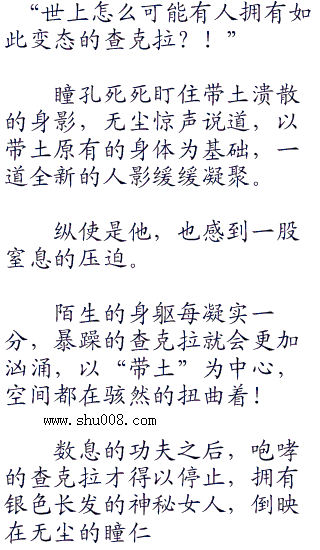 “世上怎么可能有人拥有如
此变态的查克拉？！”
瞳孔死死盯住带土溃散
的身影，无尘惊声说道，以
带土原有的身体为基础，一
道全新的人影缓缓凝聚。
纵使是他，也感到一股
窒息的压迫。
陌生的身躯每凝实一
分，暴躁的查克拉就会更加
汹涌，以“带土”为中心，
空间都在骇然的扭曲着！
www.shu008.com
数息的功夫之后，咆哮
的查克拉才得以停止，拥有
银色长发的神秘女人，倒映
在无尘的瞳仁